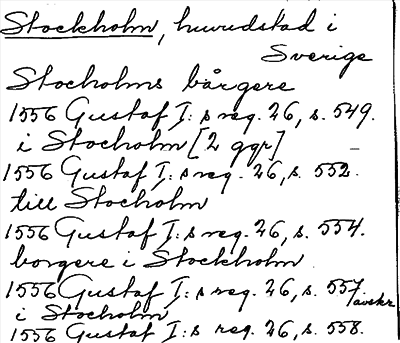 Stockholm, huvudstad i
Sverige
Stocholms bårgere
1556 Gustaf I:s reg. 26, s. 549.
i Stocholm [2 ggr]
1556 Gustaf I:s reg. 26, s. 552.
till Stocholm
1556 Gustaf I:s reg. 26, s. 554.
borgere i Stockholm
1556 Gustaf I:s reg. 26, s. 557.
/avskr
i Stocholm
1556 Gustaf I:s reg. 26, s. 558.